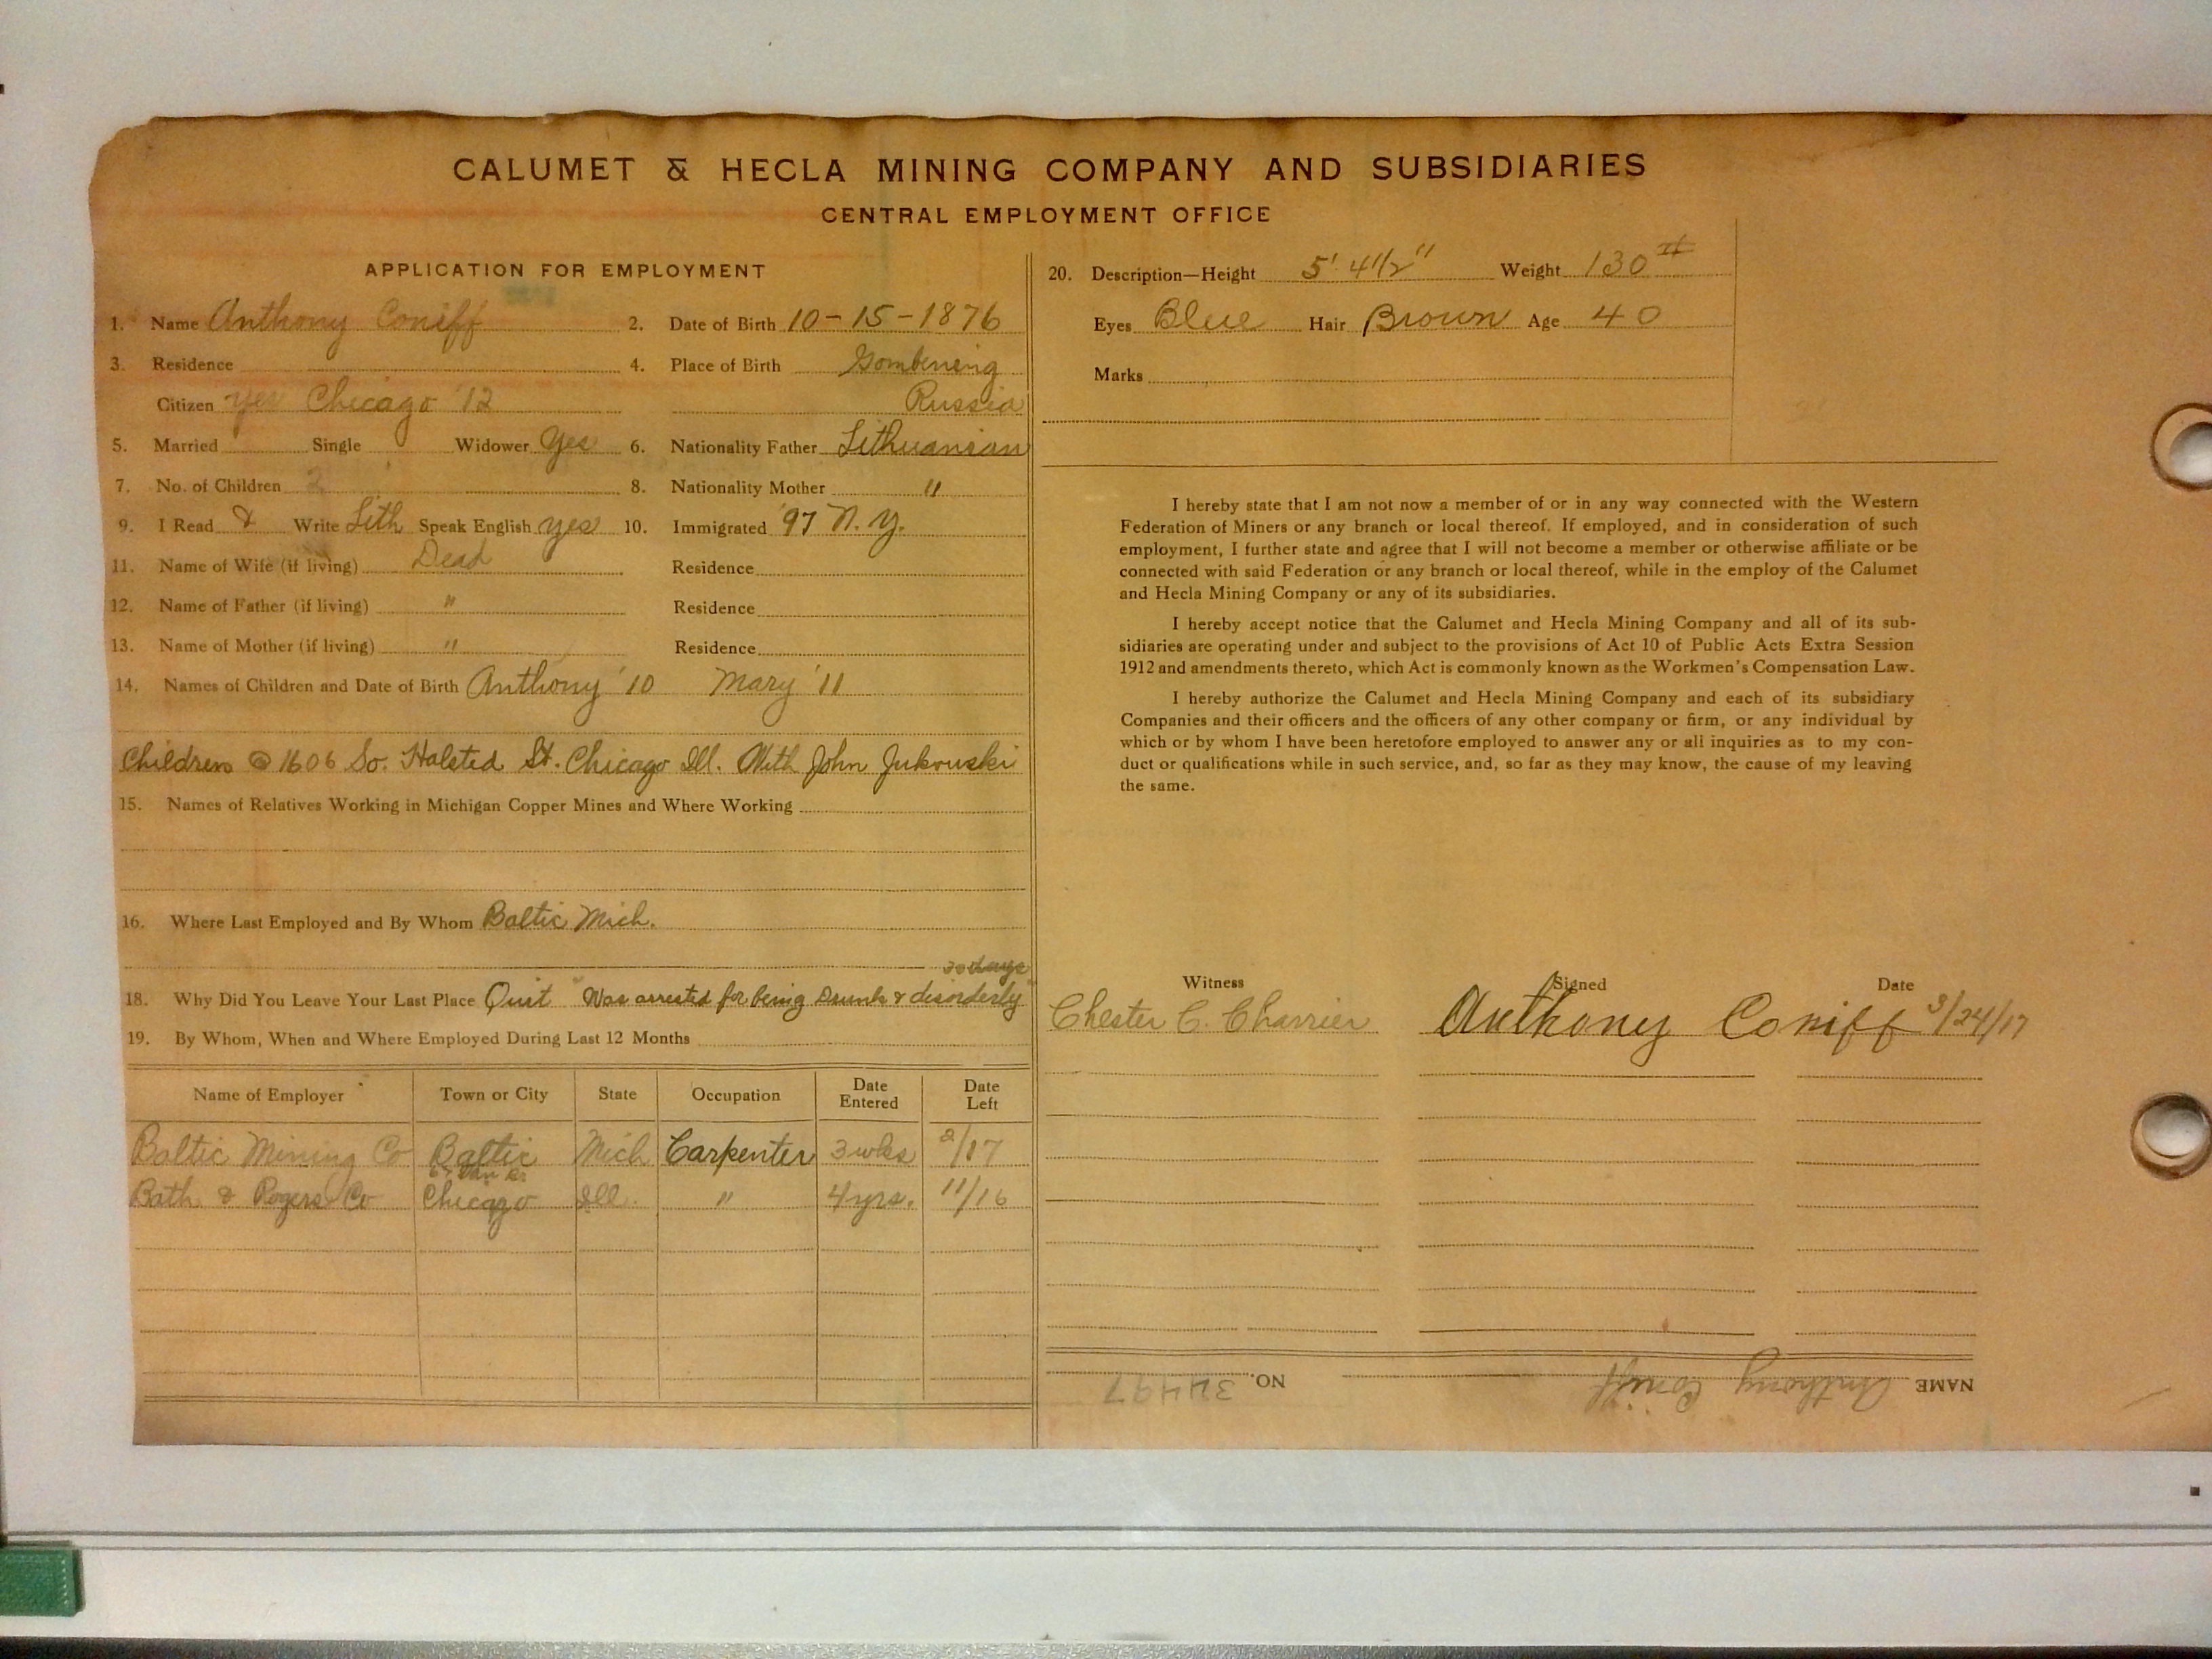 CALUMET & HECLA MINING COMPANY AND SUBSIDIARIES
CENTRAL EMPLOYMENT OFFICE
APPLICATION FOR EMPLOYMENT
1. Name Anthony Coniff 2. Date of Birth 10-15-1876
3. Residence 4. Place of Birth Gombening
Citizen yes Chicago '12 Russia
5. Married Single Widower Yes 6. Nationality Father Lithuanian
7. No. of Children 2 8. Nationality Mother "
9. I Read & Write Lith Speak English yes 10. Immigrated '97 N.Y.
11. Name of Wife (if living) Dead Residence
12. Name of Father (if living) " Residence
13. Name of Mother (if living) " Residence
14. Names of Children and Date of Birth Anthony '10 Mary '11
Children @ 1606 So. Halsted St. Chicago Ill. With John Jukowski
15. Names of Relatives Working in Michigan Copper Mines and Where Working
16. Where Last Employed and By Whom Baltic Mich.
30 days
18. Why Did You Leave Your Last Place Quit "Was arrested for being Drunk & disorderly"
19. By Whom, When and Where Employed During Last 12 Months
Name of Employer Town or City State Occupation Date Entered Date Left
Baltic Mining Co Baltic Mich Carpenter 3 wks 2/17
Bath & Rogers Co Chicago Ill. " 4 yrs. 11/16
20. Description—Height 5' 4 1/2" Weight 130 #
Eyes Blue Hair Brown Age 40
Marks
I hereby state that I am not now a member of or in any way connected with the Western
Federation of Miners or any branch or local thereof. If employed, and in consideration of such
employment, I further state and agree that I will not become a member or otherwise affiliate or be
connected with said Federation or any branch or local thereof, while in the employ of the Calumet
and Hecla Mining Company or any of its subsidiaries.
I hereby accept notice that the Calumet and Hecla Mining Company and all of its sub-
sidiaries are operating under and subject to the provisions of Act 10 of Public Acts Extra Session
1912 and amendments thereto, which Act is commonly known as the Workmen's Compensation Law.
I hereby authorize the Calumet and Hecla Mining Company and each of its subsidiary
Companies and their officers and the officers of any other company or firm, or any individual by
which or by whom I have been heretofore employed to answer any or all inquiries as to my con-
duct or qualifications while in such service, and, so far as they may know, the cause of my leaving
the same.
Witness Signed Date
Chester C. Charrier Anthony Coniff 3/24/17
NAME Anthony Coniff NO. 34497